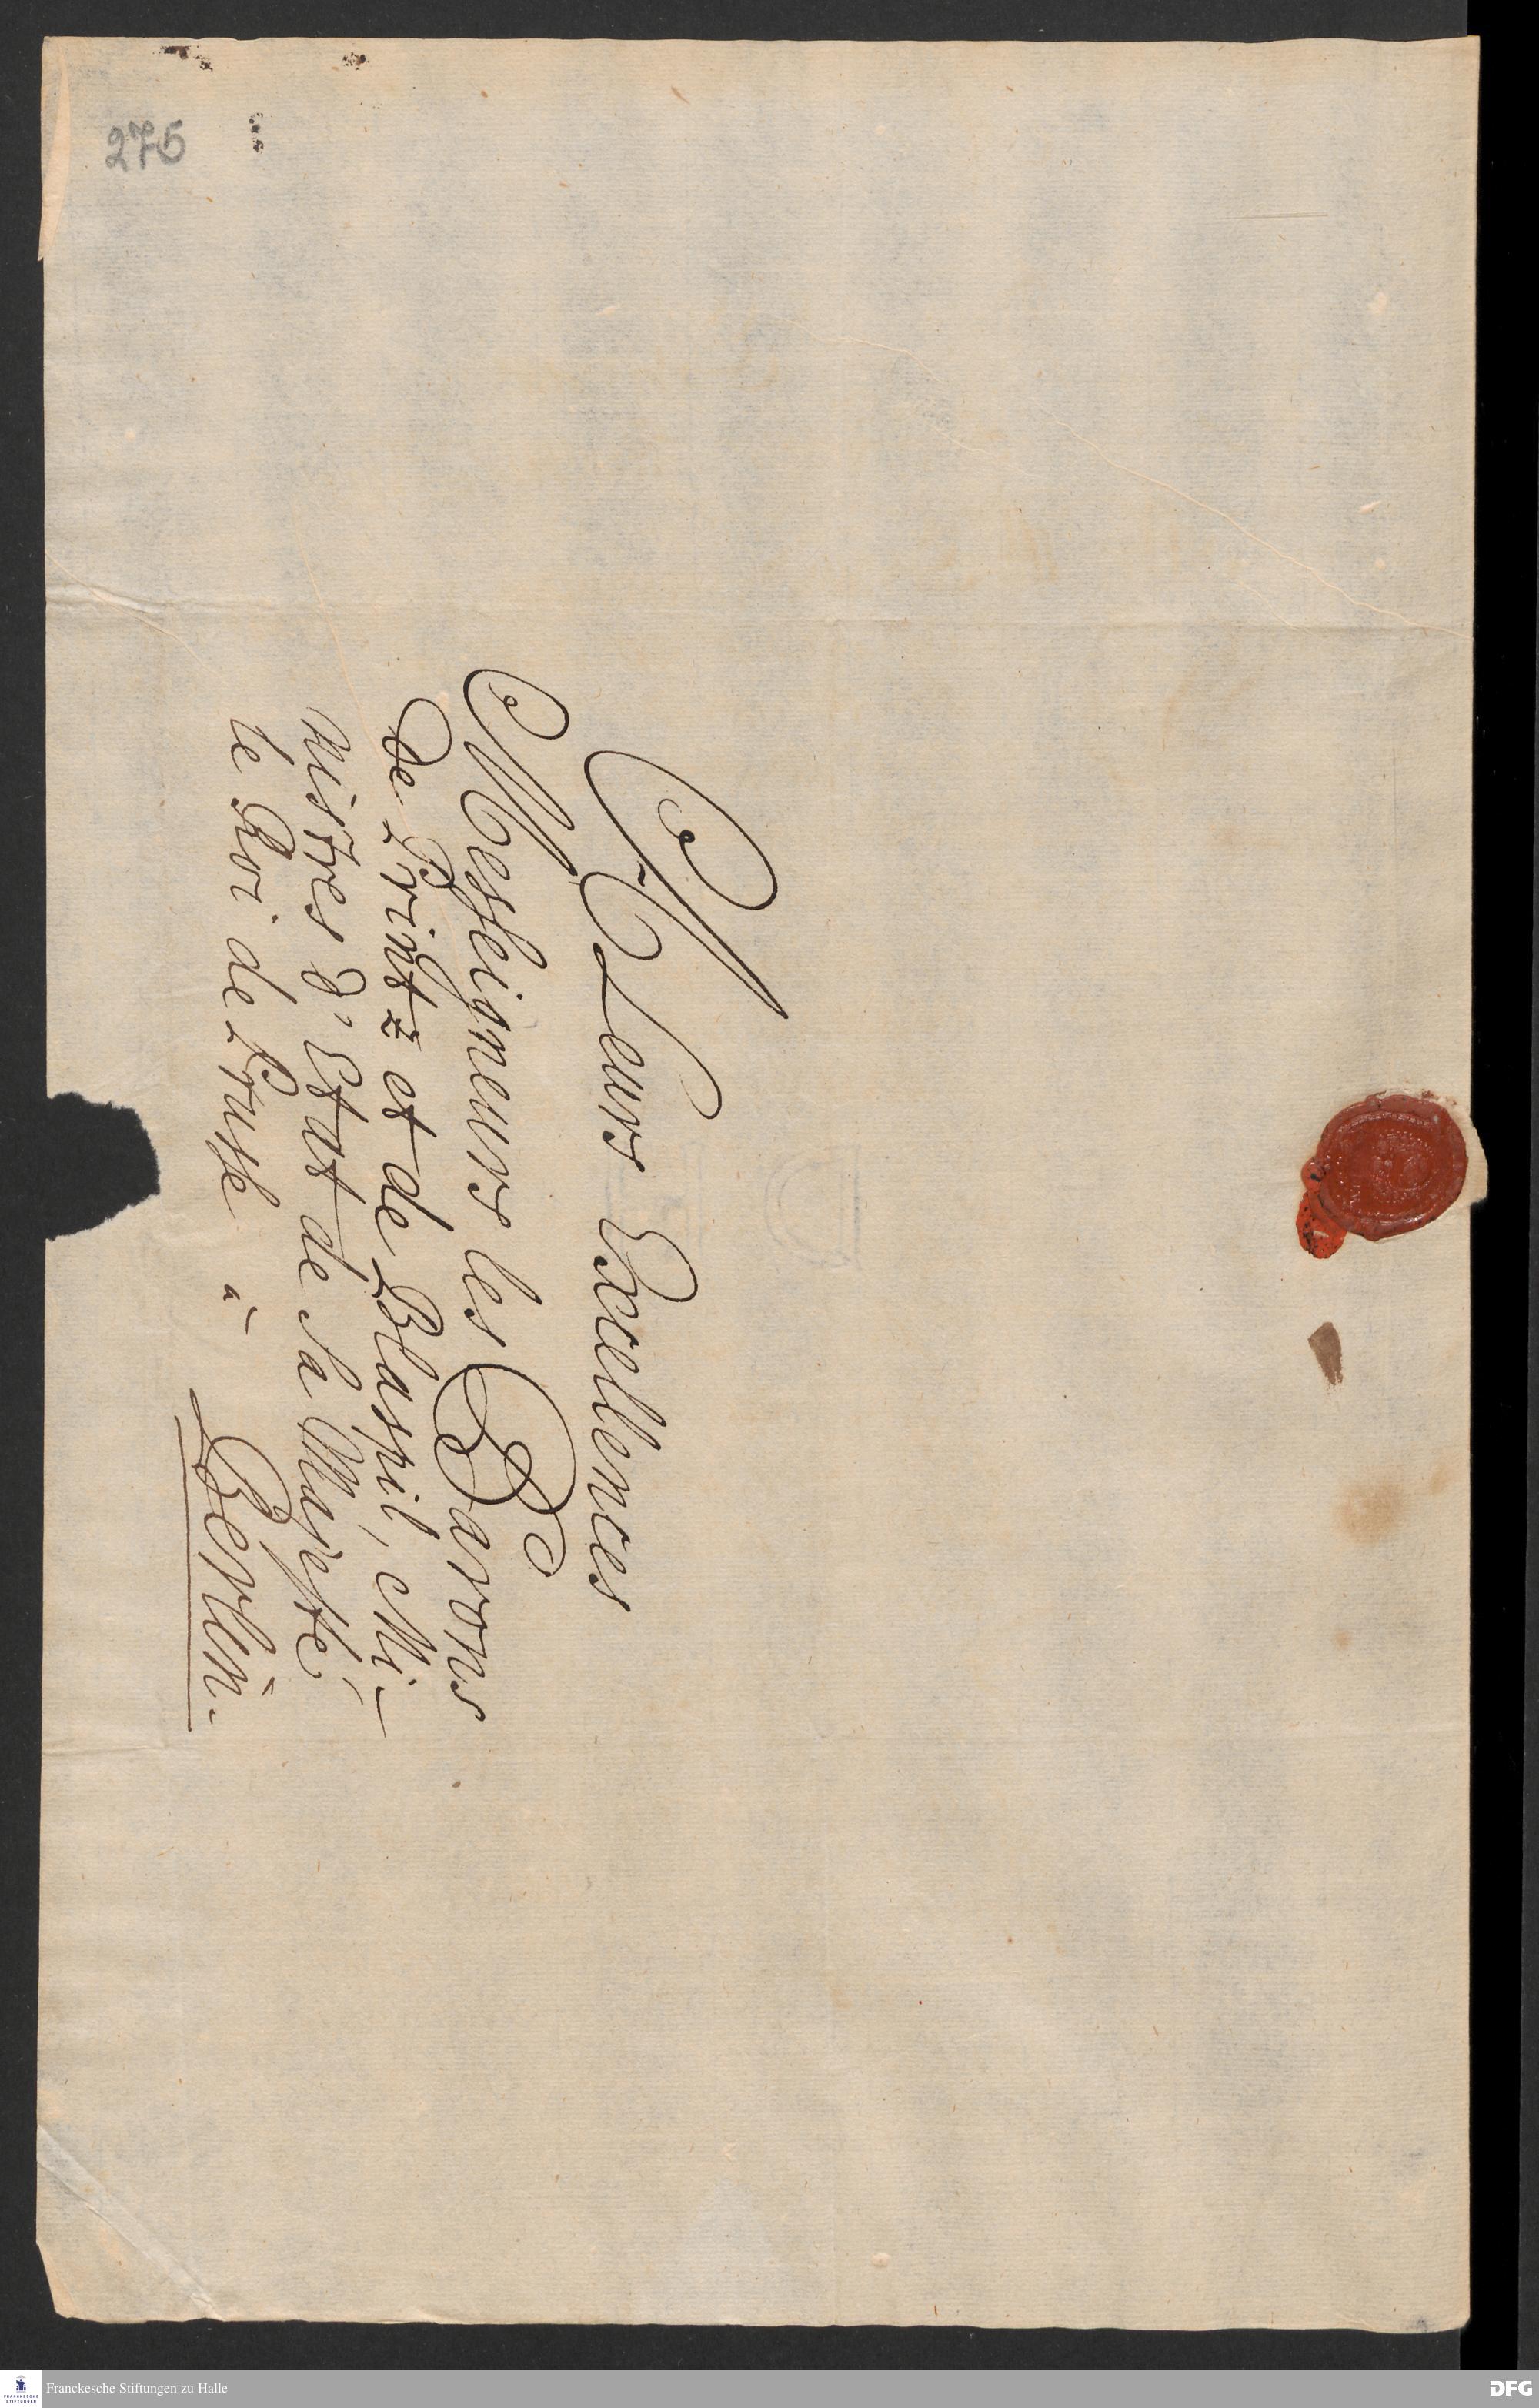 275
A Leurs Excellences
Messeigneurs les Barons
de Printz et de Blaspil, Mi-
nistres d'Etat de Sa Majesté
le Roi de Prusse
à
Berlin.
Franckesche Stiftungen zu Halle
FRANCKESCHE
STIFTUNGEN
DFG